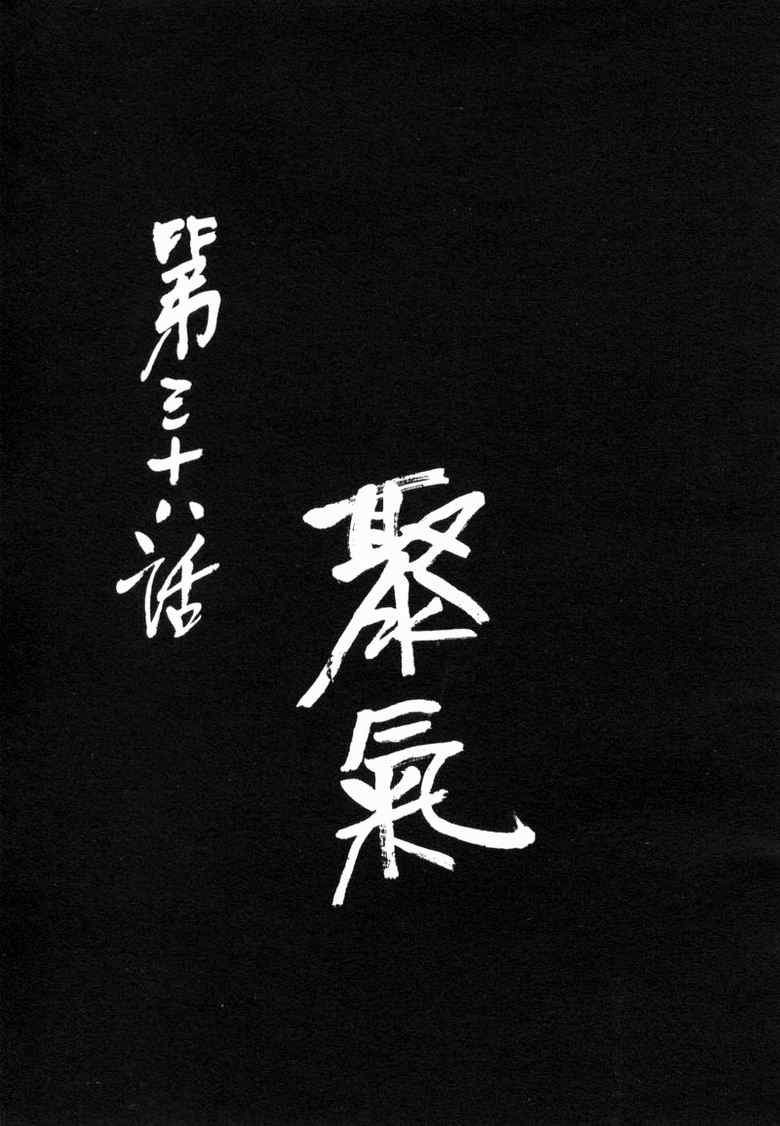 第三十八話
聚氣